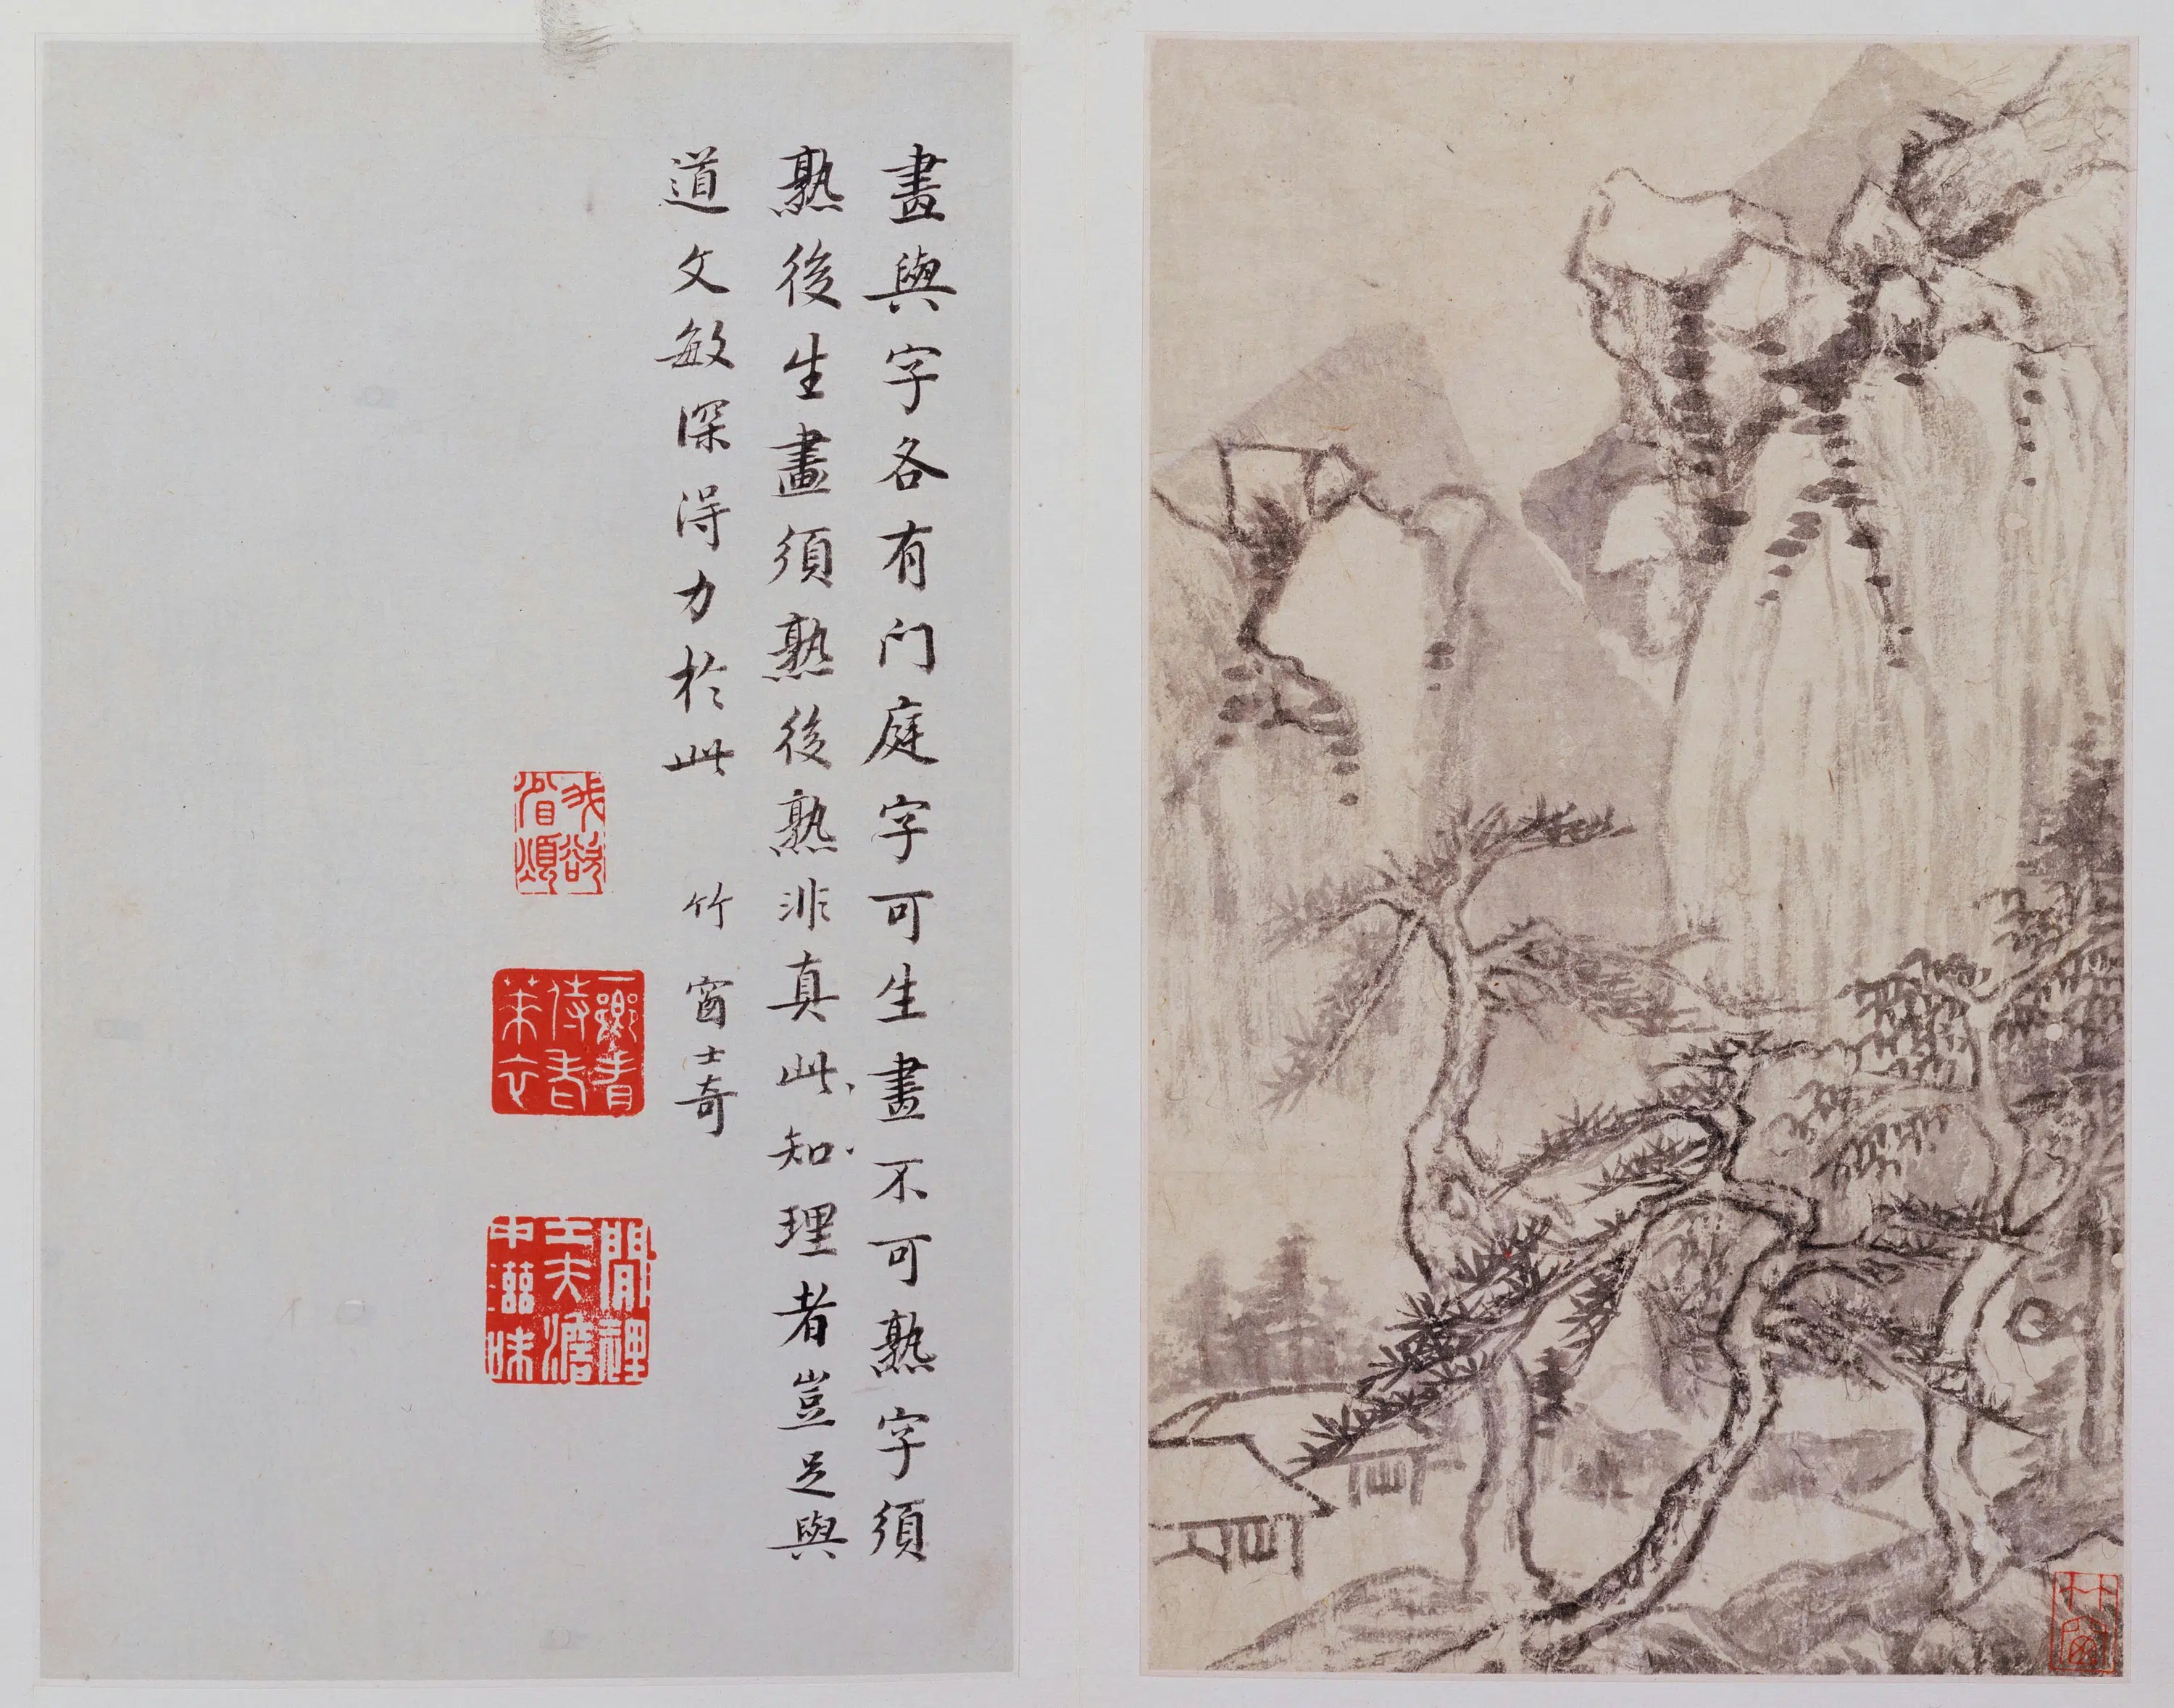 畫與字各有门庭字可生畫不可熟字須
熟後生畫須熟後熟非真此知理者豈足與
道文敏深得力於此 竹窗士奇
閒裡工夫澹中滋味
竹窗